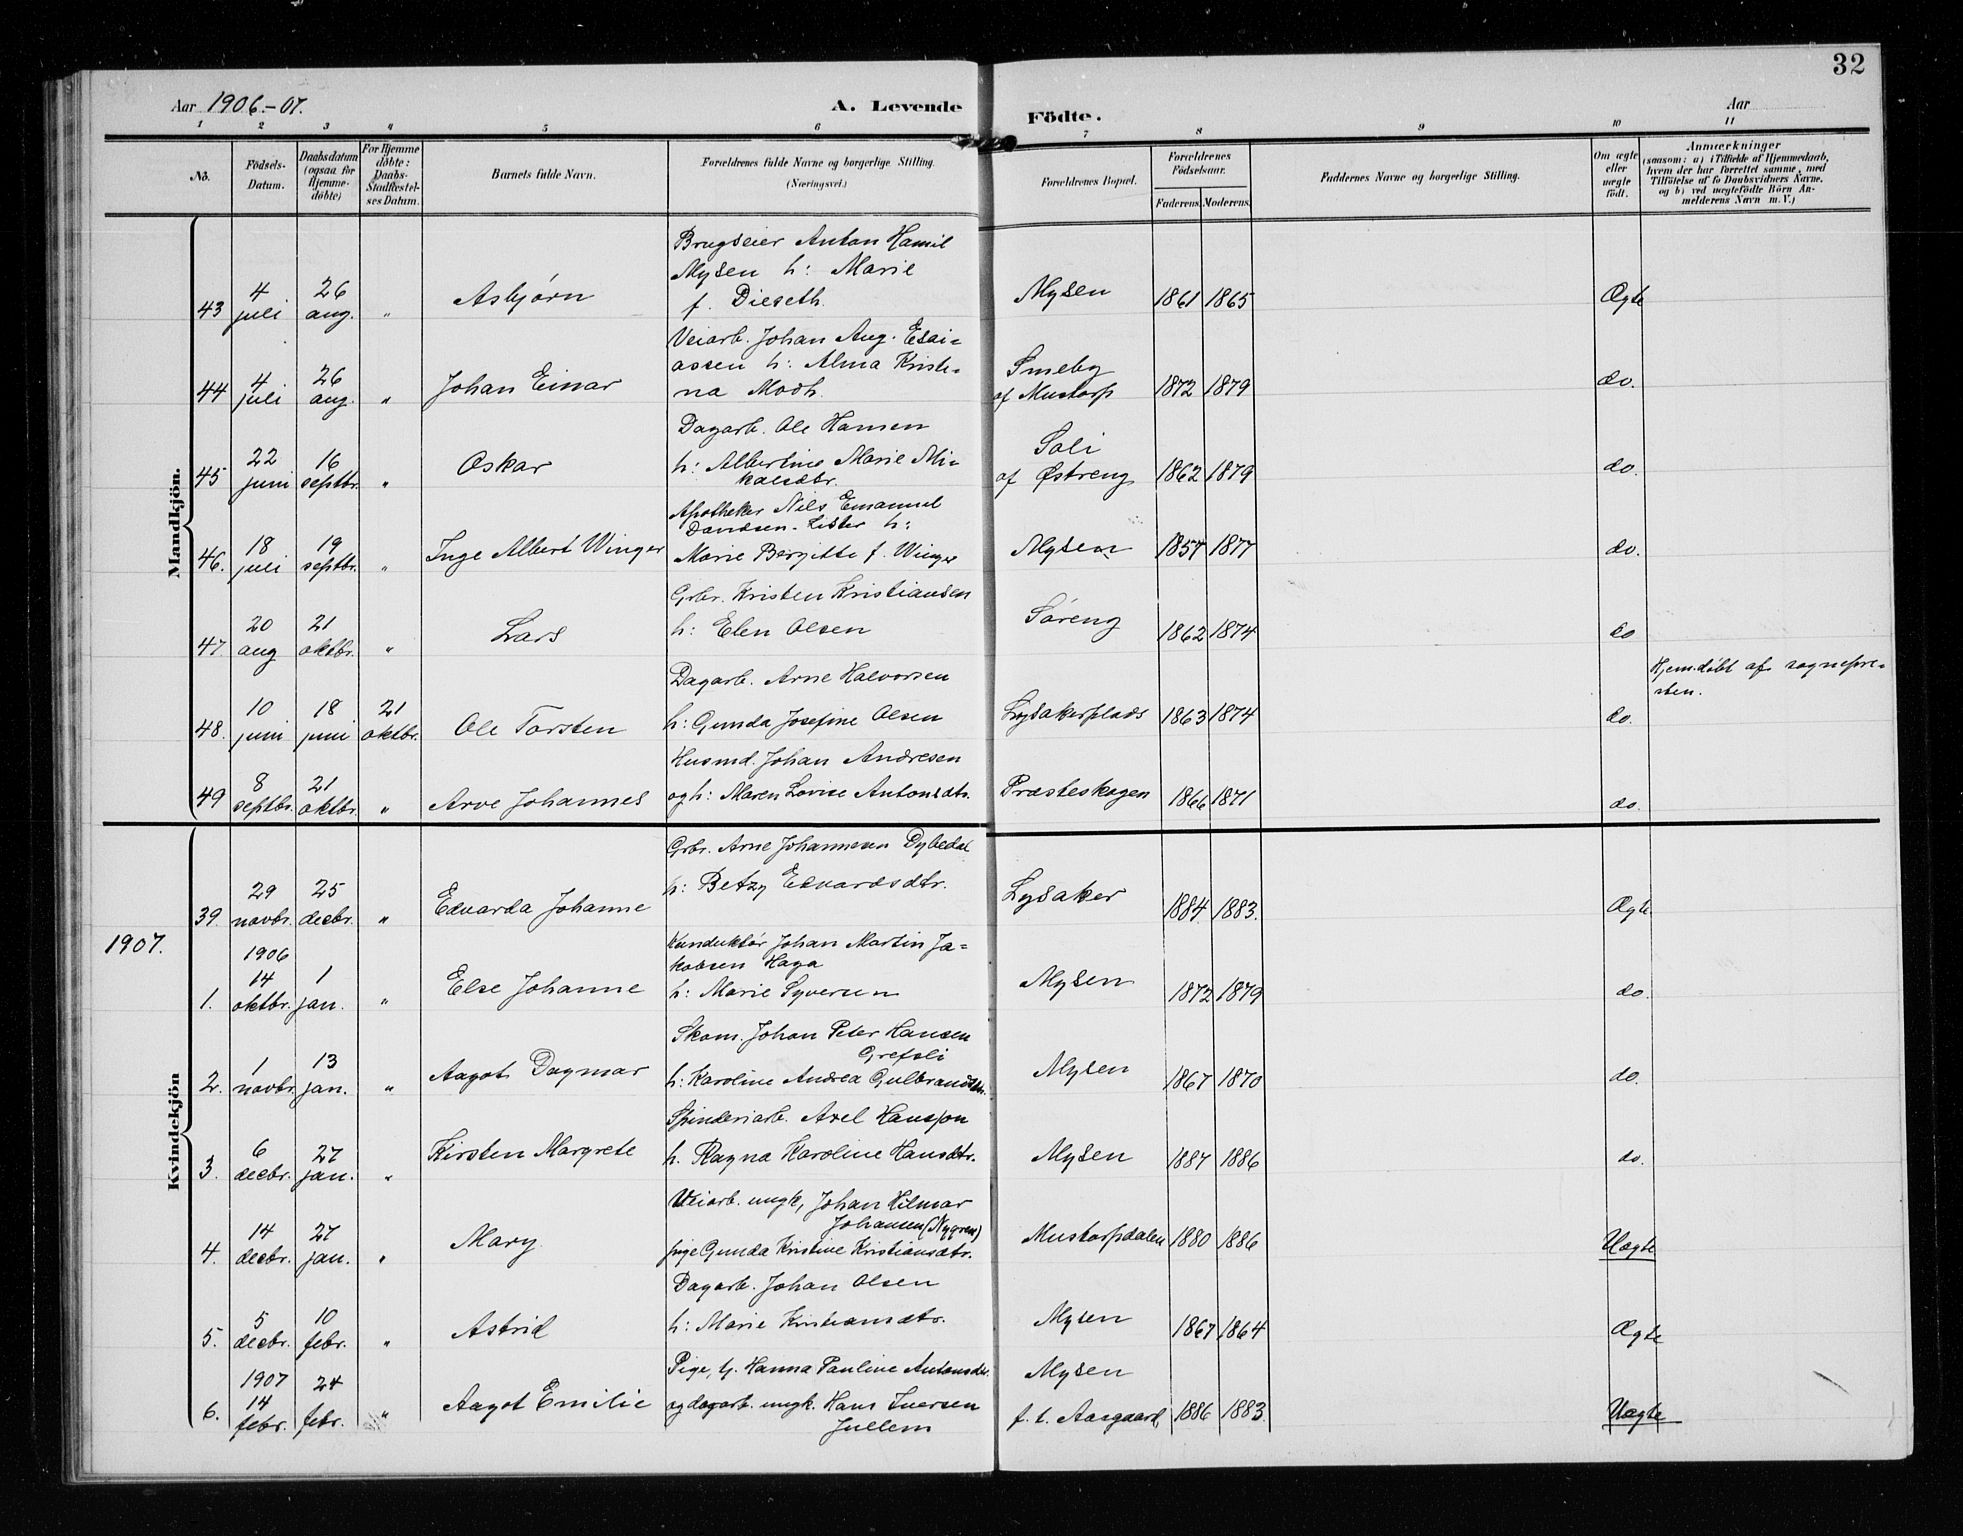 32
Aar 1906.-07.
A. Levende
Födte.
Aar
1 2 3 4 5 6 7 8 9 10 11
No.
Födsels-Datum.
Daabsdatum (ogsaa for Hjemmedöbte)
For Hjemmedöbte: Daabs-Stadfæstelses Datum.
Barnets fulde Navn.
Forældrenes fulde Navne og borgerlige Stilling.
(Næringsvei.)
Forældrenes Bopæl.
Forældrenes Födselsaar.
Faderens. Moderens.
Faddernes Navne og borgerlige Stilling.
Om ægte eller uægte født.
Anmærkninger
(saasom: a) i Tilfælde af Hjemmedaab, hvem der har forrettet samme, med Tilföielse af to Daabsvidners Navne. og b) ved uægtefödte Börn Anmelderens Navn m. V.)
Mandkjön.
43 4 juli 26 aug. " Asbjørn Brugseier Anton Hamil Mysen h: Marie f. Dieseth. Mysen 1861 1865 Ægte
44 4 juli 26 aug. " Johan Einar Veiarb. Johan Aug. Esaiassen h: Alma Kristina Modh. Smeby af Mustorp 1872 1879 do.
45 22 juni 16 septbr. " Oskar Dagarb. Ole Hansen h: Albertine Marie Mikalsdtr. Soli af Østreng 1862 1879 do.
46. 18 juli 19 septbr. " Inge Albert Winger Apotheker Nils Emanuel Davidsen-Lister h: Marie Bergitte f. Winger Mysen 1857 1877 do.
47. 20 aug 21 oktbr. " Lars Grbr. Kristen Kristiansen h: Elen Olsen Søreng 1862 1874 do
48. 10 juni 18 juni 21 oktbr. Ole Torsten Dagarb. Arne Halvorsen h: Gunda Josefine Olsen Lysakerplads 1863 1874 do. Hjemdöbt af sognepresten.
49 8 septbr. 21 oktbr. " Arve Johannes Husmd. Johan Andresen og h: Maren Lovise Antonsdtr. Præsteskogen 1866 1871 do.
Kvindekjön
39. 29 novbr. 25 decbr. " Edvarda Johanne Grbr. Arne Johannesen Dybedal h: Betzy Edvardsdtr. Lysaker 1884 1883. Ægte
1907.
1. 1906 14 oktbr. 1 jan. " Else Johanne Konduktør Johan Martin Jakobsen Haga h: Marie Syversen Mysen 1872 1879 do.
2. 1 novbr. 13 jan. " Aagot Dagmar Skom. Johan Peter Hansen Grefsli h: Karoline Andrea Gulbrandsdtr. Mysen 1867 1870 do.
3. 6 decbr. 27 jan. " Kirsten Margrete Spinderiarb. Axel Hansson h. Ragna Karoline Hansdtr. Mysen 1887 1886 do.
4. 14 decbr. 27 jan. " Mary Veiarb. ungk, Johan Hilmar Johansen (Nygren) pige Gunda Kristine Kristiansdtr. Mustorpdalen 1880 1886 Uægte
5. 5 decbr. 10 febr. " Astrid Dagarb. Johan Olsen h: Marie Kristiansdtr. Mysen 1867 1864 Ægte
6. 1907 14 febr. 24 febr. " Aagot Emilie Pige, tj. Hanna Pauline Antonsdtr. og dagarb. ungk. Hans Iversen Jullem Mysen f. t. Aasgaard 1886 1883. Uægte